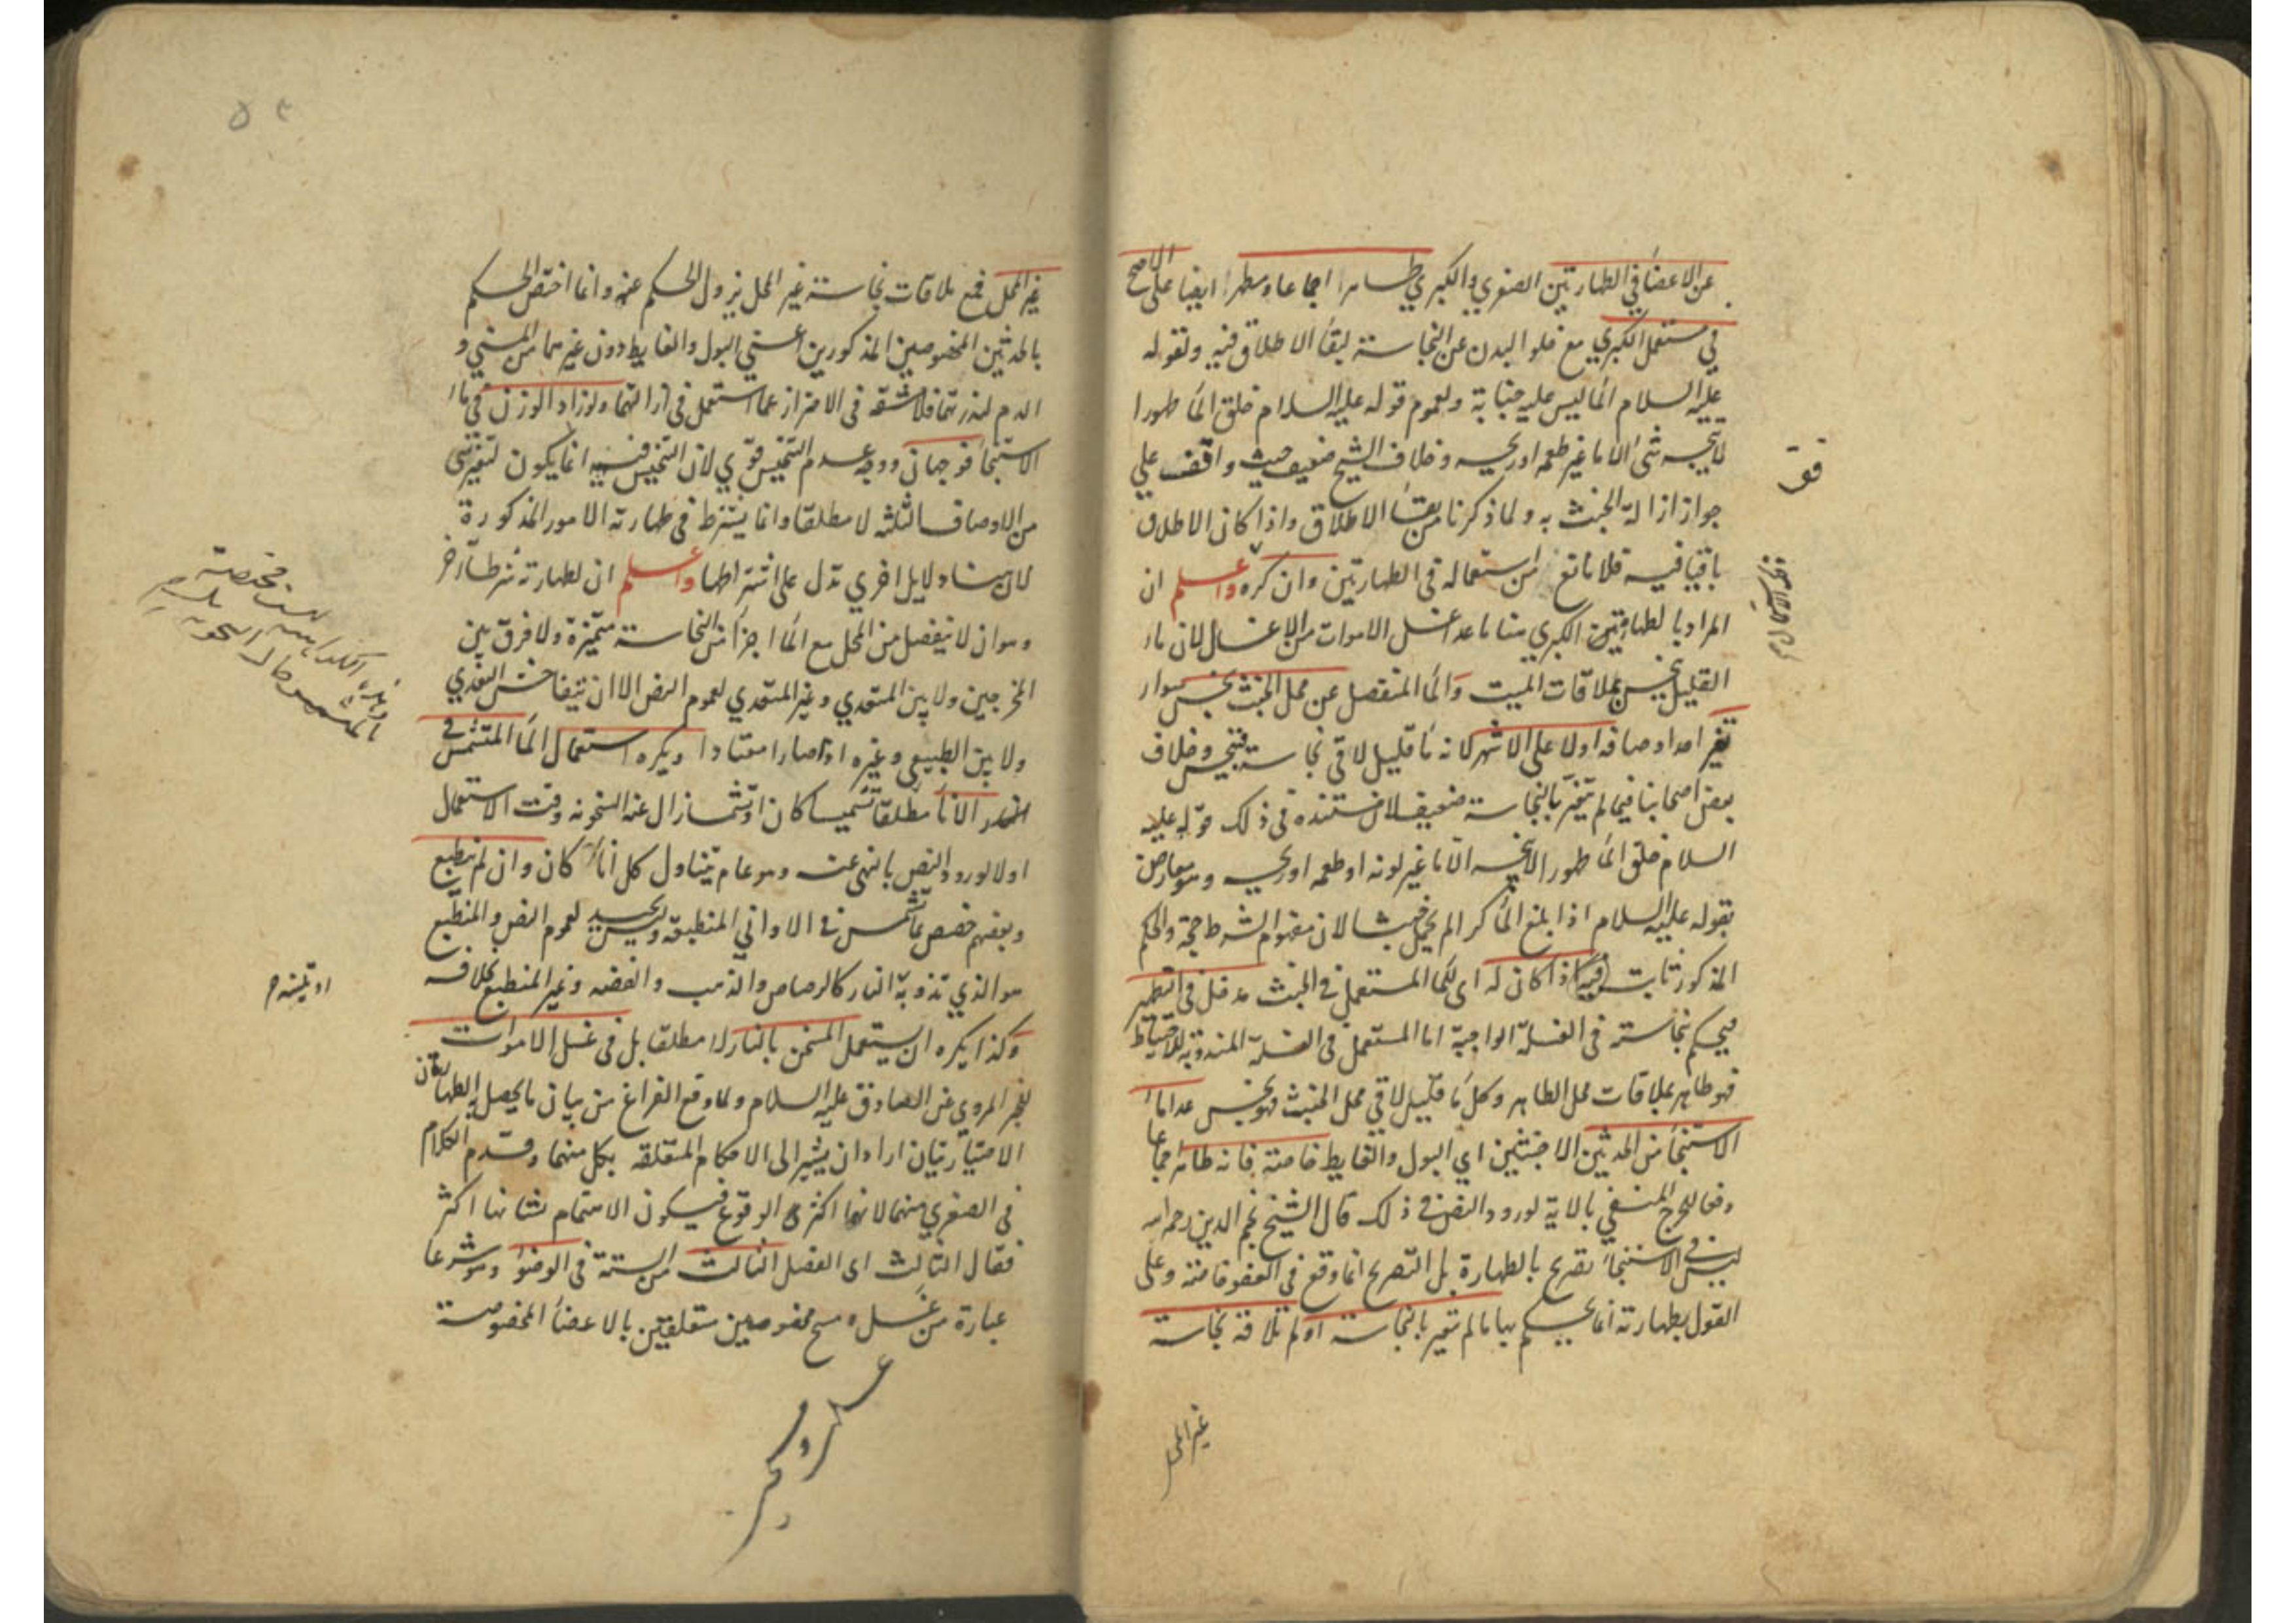 عن الاعضاء في الطهارتين الصغري والكبري طاهرا اجماعا ومطهرا ايضا على الاصح
في مستعمل الكبري مع خلو البدن عن النجاسة لبقاء الاطلاق فيه ولقوله
عليه السلام الماء ليس عليه جنابة ولعموم قوله عليه السلام خلق الماء طهورا
لا ينجسه شئ الا ما غير طعمه او ريحه وخلاف الشيخ ضعيف حيث وافقف علي
جواز ازالة الخبث به ولما ذكرنا من بقاء الاطلاق واذا كان الاطلاق
باقيا فيه فلا مانع من استعماله في الطهارتين وان كره واعلم ان
المراد بالطهارتين الكبري هنا ما عدا غسل الاموات من الاغسال لان ماء
القليل ينجس بملاقات الميت والماء المنفصل عن محل الخبث نجس سواء
تغير احد اوصافه اولا على الاشهر لانه ماء قليل لاقى نجاسة فينجس وخلاف
بعض اصحابنا فيما لم يتغير بالنجاسة ضعيف لان مستنده في ذلك قوله عليه
السلام خلق الماء طهورا لا ينجسه الا ما غير لونه او طعمه او ريحه وهو معارض
بقوله عليه السلام اذا بلغ الماء كرا لم يحمل خبثا لان مفهوم الشرط حجة والحكم
المذكور ثابت فيما اذا كان له اى لماء المستعمل في الخبث مدخل في التطهير
فيحكم بنجاسته في الغسلة الواجبة اما المستعمل في الغسلة المندوبة للاحتياط
فهو طاهر بملاقات محل الطاهر وكل ماء قليل لاقي محل الخبث فهو نجس عدا ماء
الاستنجاء من الحدثين الاخبثين اي البول والغايط خاصة فانه طاهر اجماعا
دفعا للحرج المنفي بالاية لورود النص في ذلك قال الشيخ نجم الدين رحمه الله
ليس في الاستنجاء تصريح بالطهارة بل التصريح انما وقع في العفو خاصة وعلى
القول بطهارته انما يحكم بها ما لم تتغير بالنجاسة او لم تلاقه نجاسة
غير المحل
غير المحل فمع ملاقات نجاسة غير المحل يزول الحكم عنه وانما اختص الحكم
بالحدثين المخصوصين المذكورين اعني البول والغايط دون غيرهما من المني و
الدم لندرتهما فلا مشقة في الاحتراز عما استعمل في ازالتهما ولو زاد الوزن في ماء
الاستنجاء فوجهان ووجه عدم التنجيس قوي لان التنجيس فيه انما يكون لتغير شئ
من الاوصاف الثلثه لا مطلقا وانما يشترط في طهارته الامور المذكورة
لان هنا دلايل اخري تدل على اشتراطها واعلم ان لطهارته شرطا آخر
وهو ان لا ينفصل من المحل مع الماء اجزاء من النجاسة متميزة ولا فرق بين
المخرجين ولا بين المتعدي وغير المتعدي لعموم النص الا ان يتفاحش التعدي
ولا بين الطبيعي وغيره اذا صارا معتادا ويكره استعمال الماء المتشمس في
الاناء مطلقا تشميسا كان او تشمسا زال عنه السخونه وقت الاستعمال
اولا لورود النص بالنهى عنه وهو عام يتناول كل اناء كان وان لم ينطبع
وبعضهم خصص بما تشمس في الاواني المنطبقه وليس بجيد لعموم النص والمنطبع
هو الذي تذوبه النار كالرصاص والذهب والفضه وغير المنطبع بخلافه
وكذا يكره ان يستعمل المسخن بالنار لا مطلقا بل في غسل الاموات
للخبر المروي عن الصادق عليه السلام ولما وقع الفراغ من بيان ما يحصل به الطهارتان
الاختياريتان اراد ان يشير الى الاحكام المتعلقه بكل منهما وقدم الكلام
في الصغري منهما لانها اكثري الوقوع فيكون الاهتمام بشانها اكثر
فقال الثالث اى الفصل الثالث من الستة في الوضوء وهو شرعا
عبارة من غسل ومسح مخصوصين متعلقين بالاعضاء المخصوصة